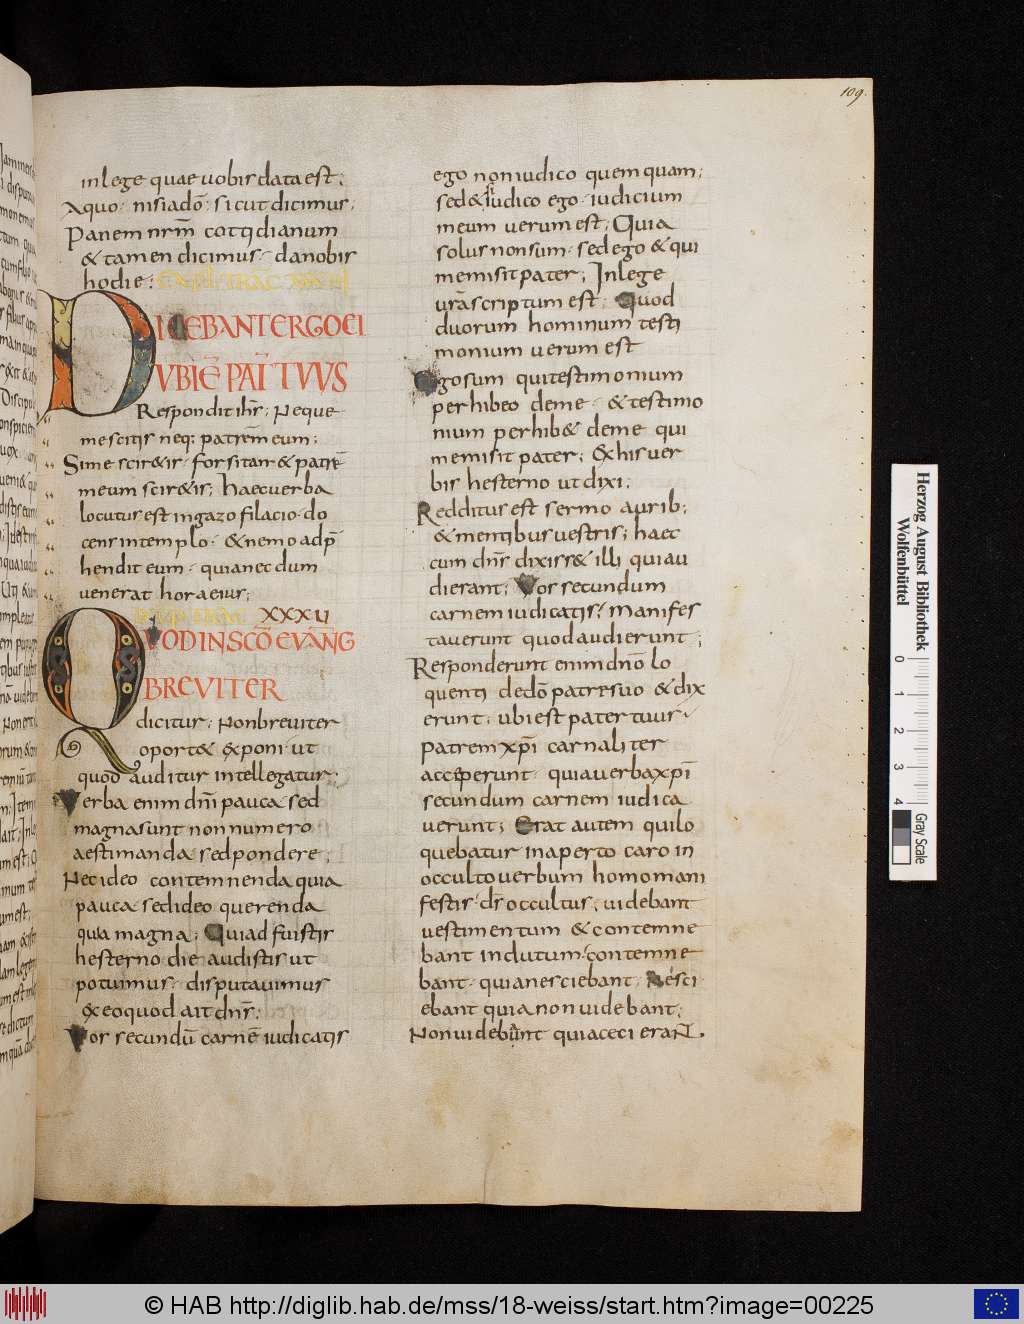 109.
in lege quae uobis data est;
A quo· nisi a dõ· sicut dicimus·
Panem nr̃m cotidianum
& tamen dicimus· da nobis
hodie;
DICEBANT ERGO EI
VBI Ẽ PAT̃ TVVS
Respondit ihs̃; Neque
me scitis neq; patrẽm eum;
Si me scir&is· forsitan & patrẽ
meum scir&is; Haec uerba
locutus est in gazofilacio· do
cens in templo· & nemo adp̃
hendit eum· quia necdum
uenerat hora eius;
XXXVII
QVOD IN SCÕ EVANG
BREVITER
dicitur; Non breuiter
oport& exponi· ut
quod auditur intellegatur·
Verba enim dñi pauca sed
magna sunt non numero
aestimanda sed pondere;
Nec ideo contemnenda quia
pauca sed ideo querenda
quia magna; Qui adfuistis
hesterno die audistis ut
potuimus· disputauimus
ex eo quod ait dns̃;
Vos secundũ carnẽ iudicatis
ego non iudico quemquam;
sed & si iudico ego· iudicium
meum uerum est; Quia
solus non sum· sed ego & qui
me misit pater; In lege
ur̃a scriptum est; Quod
duorum hominum testi
monium uerum est
Ego sum qui testimonium
perhibeo de me· & testimo
nium perhib& de me qui
me misit pater; Ex his uer
bis hesterno ut dixi;
Redditus est sermo aurib;
& mentibus uestris; haec
cum dns̃ dixiss& illi qui au
dierant; Vos secundum
carnem iudicatis· Manifes
tauerunt quod audierunt;
Responderunt enim dnõ lo
quenti de dõ patre suo & dix
erunt; ubi est pater tuus·
Patrem xp̃i carnaliter
acceperunt· quia uerba xp̃i
secundum carnem iudica
uerunt; Erat autem qui lo
quebatur in aperto caro in
occulto uerbum homo mani
festus· ds̃ occultus; uidebant
uestimentum & contemne
bant indutum· contemne
bant· quia nesciebant; Nesci
ebant quia non uidebant;
Non uidebant quia ceci erant.
Herzog August Bibliothek
Wolfenbüttel
0 1 2 3 4
Gray Scale
© HAB http://diglib.hab.de/mss/18-weiss/start.htm?image=00225